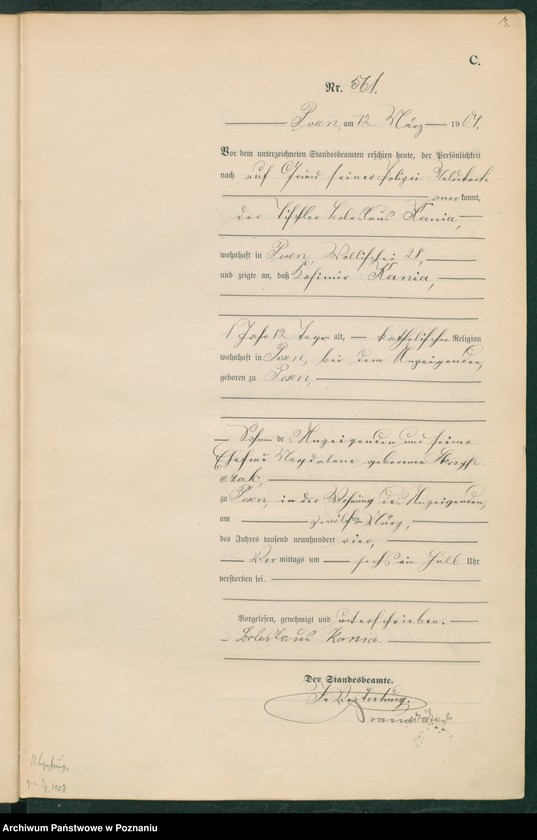 3.
C.
Nr. 561.
Posen, am 12 März 1904.
Vor dem unterzeichneten Standesbeamten erschien heute, der Persönlichkeit
nach auf Grund seiner Polizei-Meldekarte
anerkannt,
der Tischler Boleslaus Kania,
wohnhaft in Posen, Wallischei 28,
und zeigte an, daß Casimir Kania,
1 Jahr 12 Tage alt, katholischer Religion
wohnhaft in Posen, bei dem Anzeigenden,
geboren zu Posen,
Sohn des Anzeigenden und seiner
Ehefrau Magdalene geborenen
zu Posen, in der Wohnung des Anzeigenden,
am zwölften März,
des Jahres tausend neunhundert vier,
Vor mittags um sechs ein halb Uhr
verstorben sei.
Vorgelesen, genehmigt und unterschrieben.
Boleslaus Kania.
Der Standesbeamte.
In Vertretung.
Archiwum Państwowe w Poznaniu